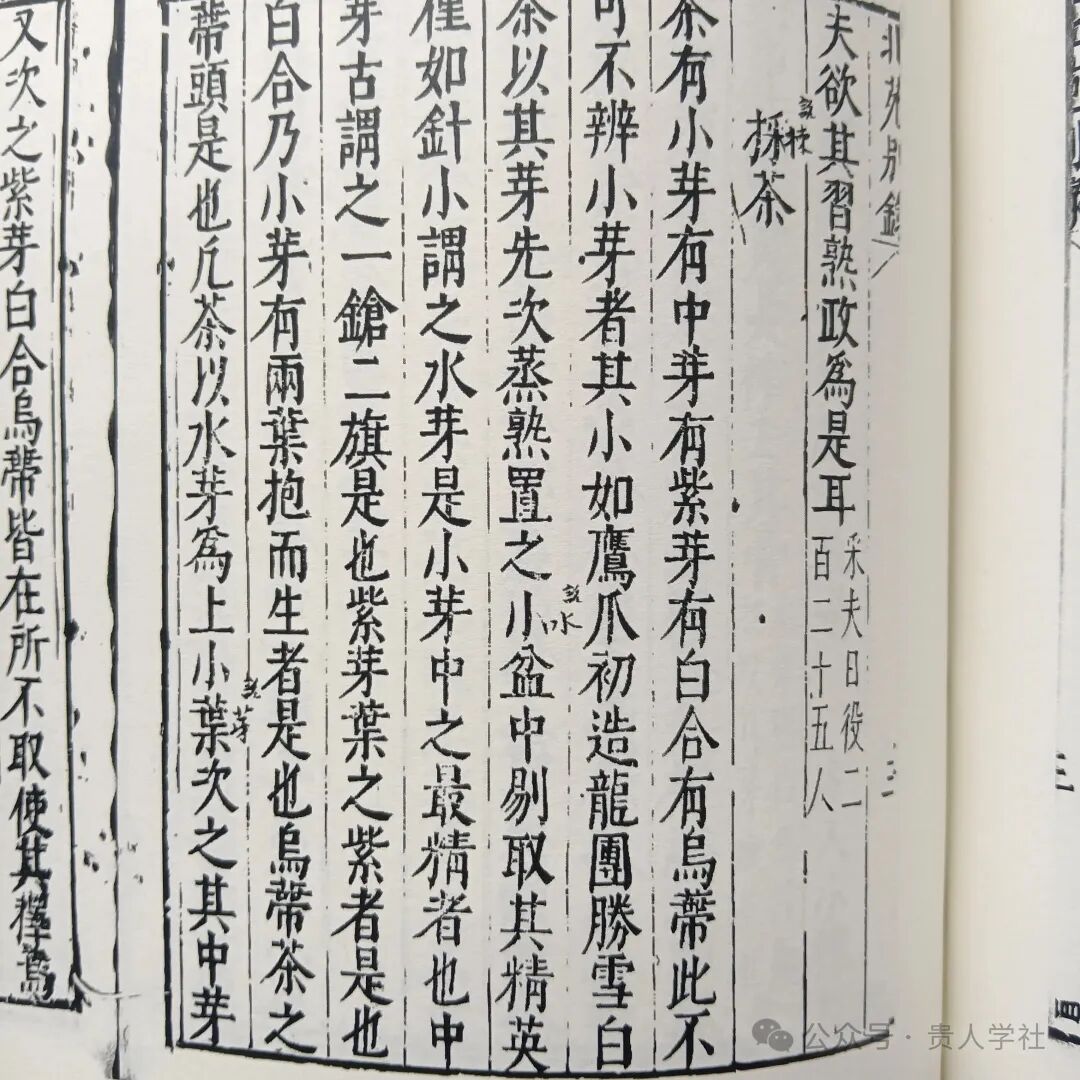 北苑别錄 三
夫欲其習熟政爲是耳
采夫日役二
百二十五人
採茶
揀
茶有小芽有中芽有紫芽有白合有烏蔕此不
可不辨小芽者其小如鷹爪初造龍團勝雪白
水
茶以其芽先次蒸熟置之小盆中剔取其精英
僅如針小謂之水芽是小芽中之最精者也中
芽古謂之一鎗二旗是也紫芽葉之紫者是也
白合乃小芽有兩葉抱而生者是也烏蔕茶之
芽
蔕頭是也凢茶以水芽爲上小葉次之其中芽
又次之紫芽白合烏蔕皆在所不取使其擇焉
公众号·贵人学社